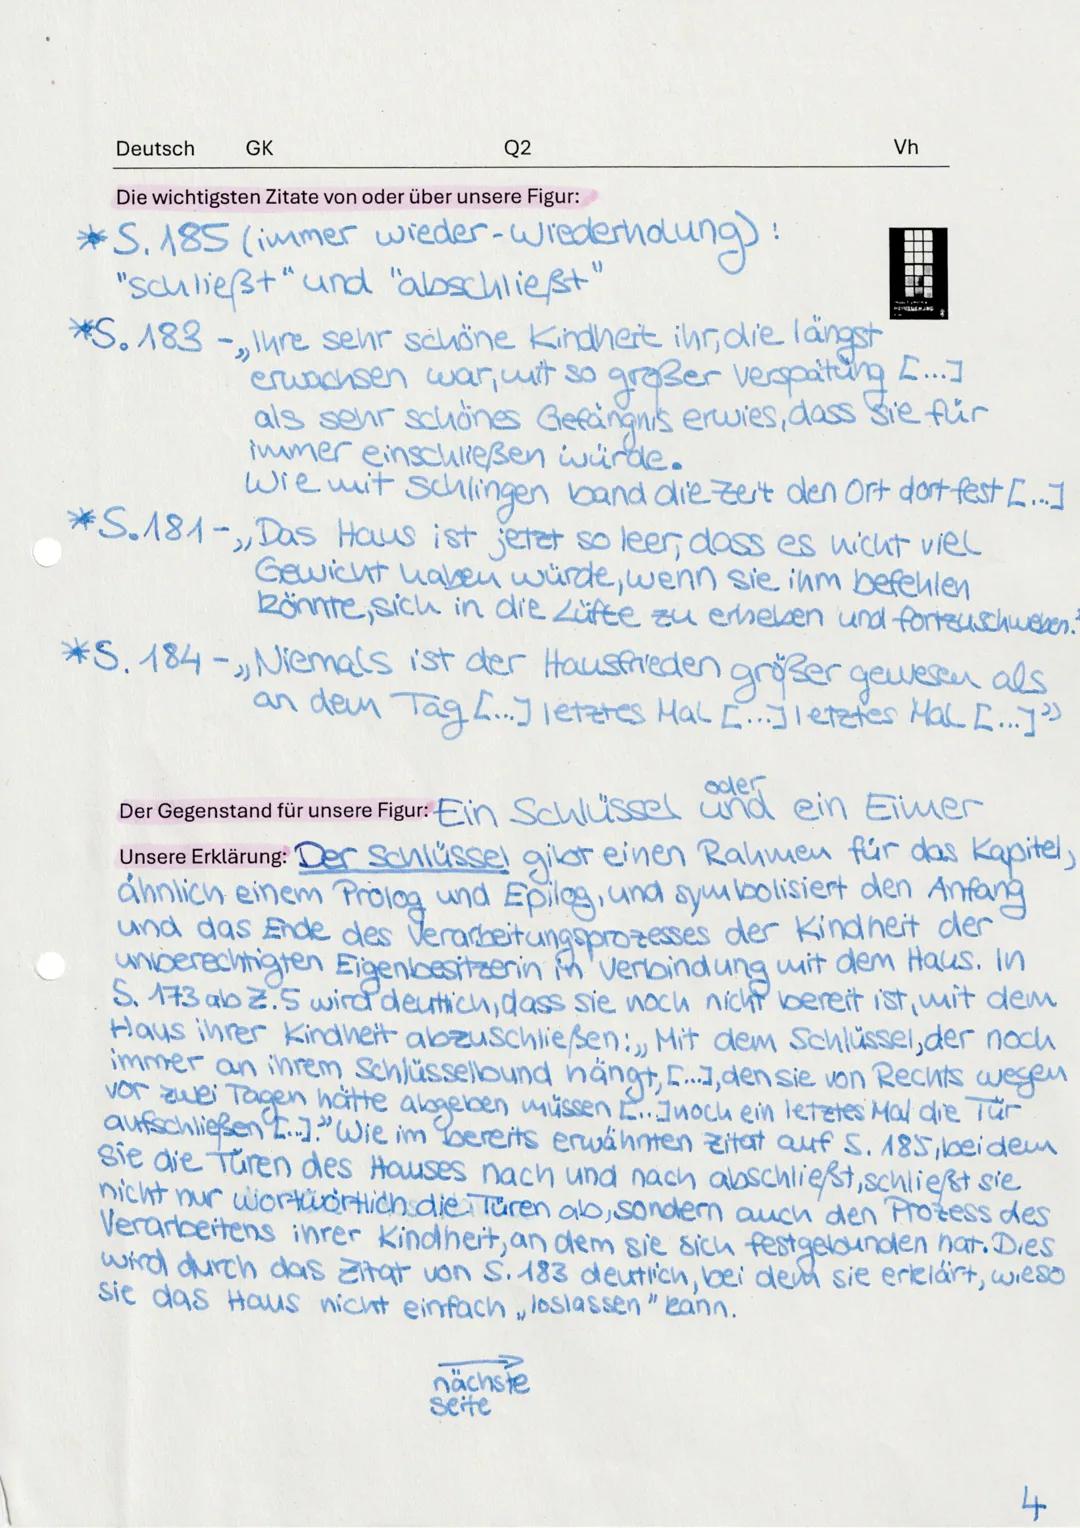 Deutsch GK Q2 Vh
Die wichtigsten Zitate von oder über unsere Figur:
*S. 185 (immer wieder-Wiederholung):
"schließt" und "abschließt"
*S. 183 - „Ihre sehr schöne Kindheit ihr, die längst
erwachsen war, mit so großer Verspätung [...]
als sehr schönes Gefängnis erwies, dass sie für
immer einschließen würde.
Wie mit Schlingen band die Zeit den Ort dort fest [...]
*S. 181 - „Das Haus ist jetzt so leer, dass es nicht viel
Gewicht haben würde, wenn sie ihm befehlen
könnte, sich in die Lüfte zu erheben und fortzuschweben."
*S. 184 - „Niemals ist der Hausfrieden größer gewesen als
an dem Tag [...] letztes Mal [...] letztes Mal [...]"
oder
Der Gegenstand für unsere Figur: Ein Schlüssel und ein Eimer
Unsere Erklärung: Der Schlüssel gibt einen Rahmen für das Kapitel,
ähnlich einem Prolog und Epilog, und symbolisiert den Anfang
und das Ende des Verarbeitungsprozesses der Kindheit der
unberechtigten Eigenbesitzerin in Verbindung mit dem Haus. In
S. 173 ab Z. 5 wird deutlich, dass sie noch nicht bereit ist, mit dem
Haus ihrer Kindheit abzuschließen: „Mit dem Schlüssel, der noch
immer an ihrem Schlüsselbund hängt, [...], den sie von Rechts wegen
vor zwei Tagen hätte abgeben müssen [...] noch ein letztes Mal die Tür
aufschließen [...]." Wie im bereits erwähnten Zitat auf S. 185, bei dem
sie die Türen des Hauses nach und nach abschließt, schließt sie
nicht nur wortwörtlich die Türen ab, sondern auch den Prozess des
Verarbeitens ihrer Kindheit, an dem sie sich festgebunden hat. Dies
wird durch das Zitat von S. 183 deutlich, bei dem sie erklärt, wieso
sie das Haus nicht einfach „loslassen" kann.
nächste
seite
4